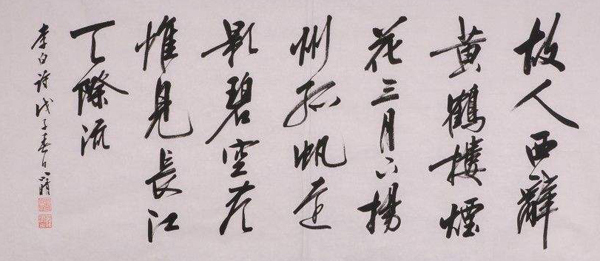 故人西辭
黃鶴樓煙
花三月下揚
州孤帆遠
影碧空尽
惟見長江
天際流
李白詩戊子春月